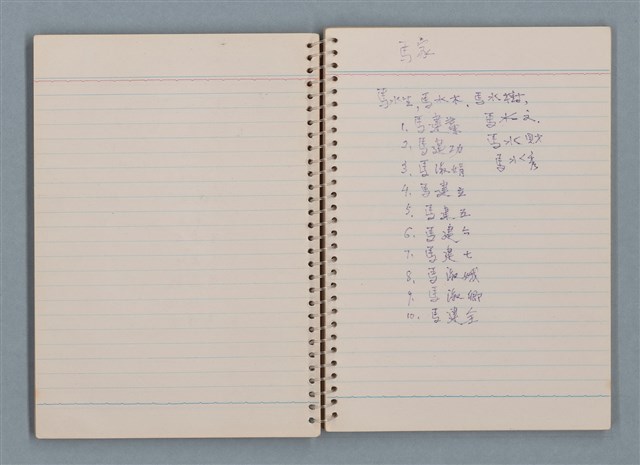 馬家
馬水生,馬水木.馬水樹,
馬水文.
馬水
馬水秀
1. 馬建
2. 馬建功
3. 馬淑娟
4. 馬建立
5. 馬建五
6. 馬建六
7. 馬建七
8. 馬淑娥
9. 馬淑卿
10. 馬建全